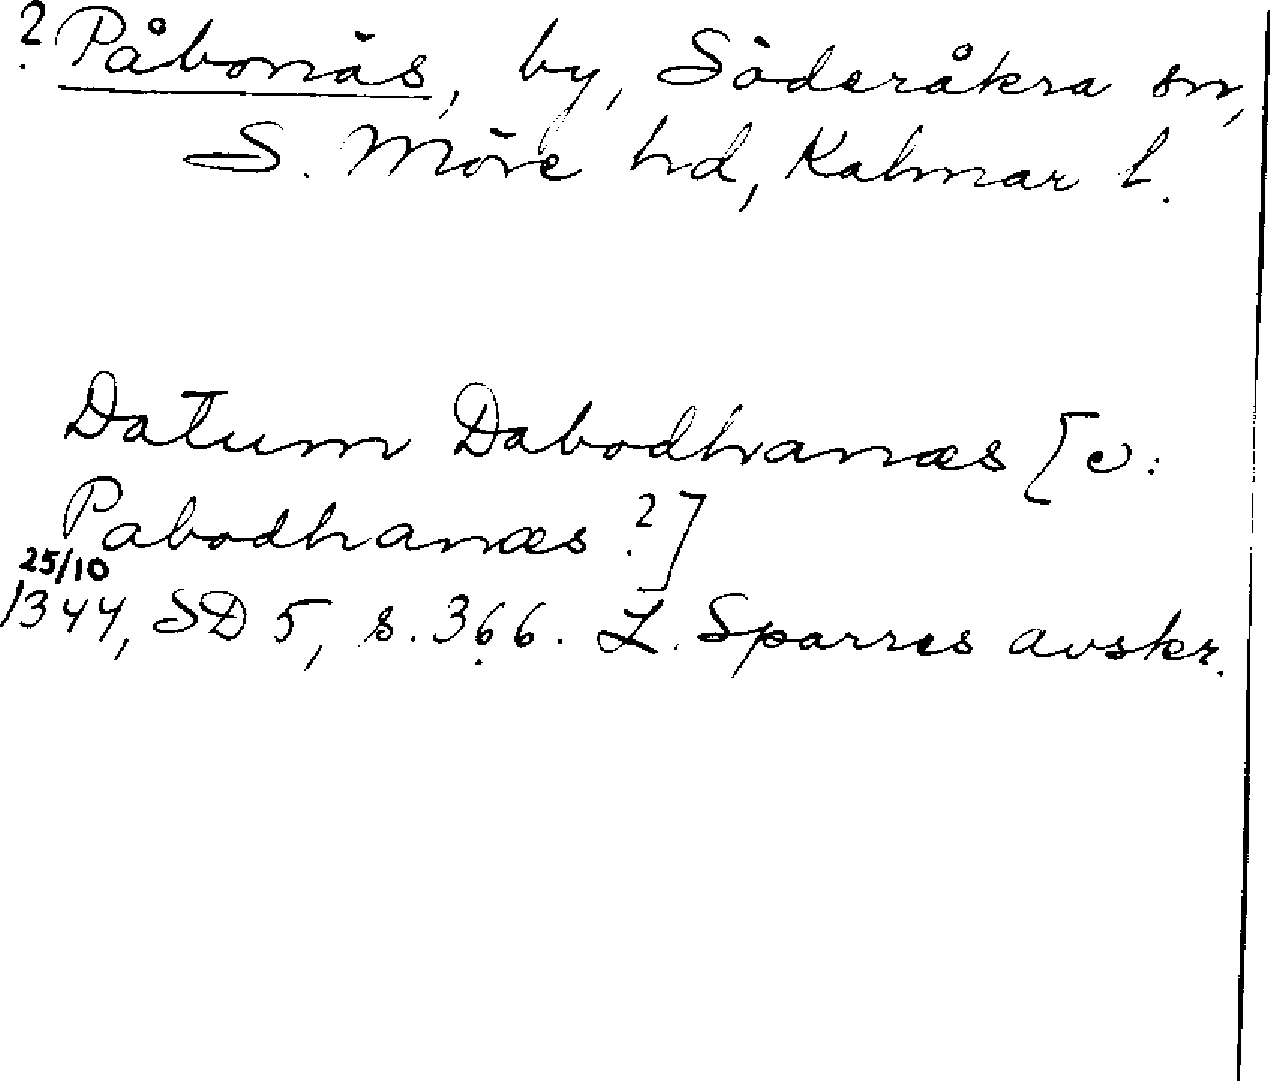 ? Påbonäs, by, Söderåkra sn,
S. Möre hd, Kalmar l.
Datum Dabodhanæs [ɔ:
Pabodhanæs ?]
25/10
1344, SD 5, s. 366. L. Sparres avskr.